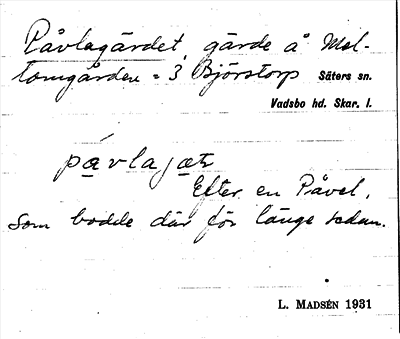 Påvlagärdet, gärde å Mel-
tomgården = 3 Björstorp Säters sn.
Vadsbo hd. Skar. l.
Efter en Påvel,
som bodde där för länge sedan.
L. MADSÉN 1931